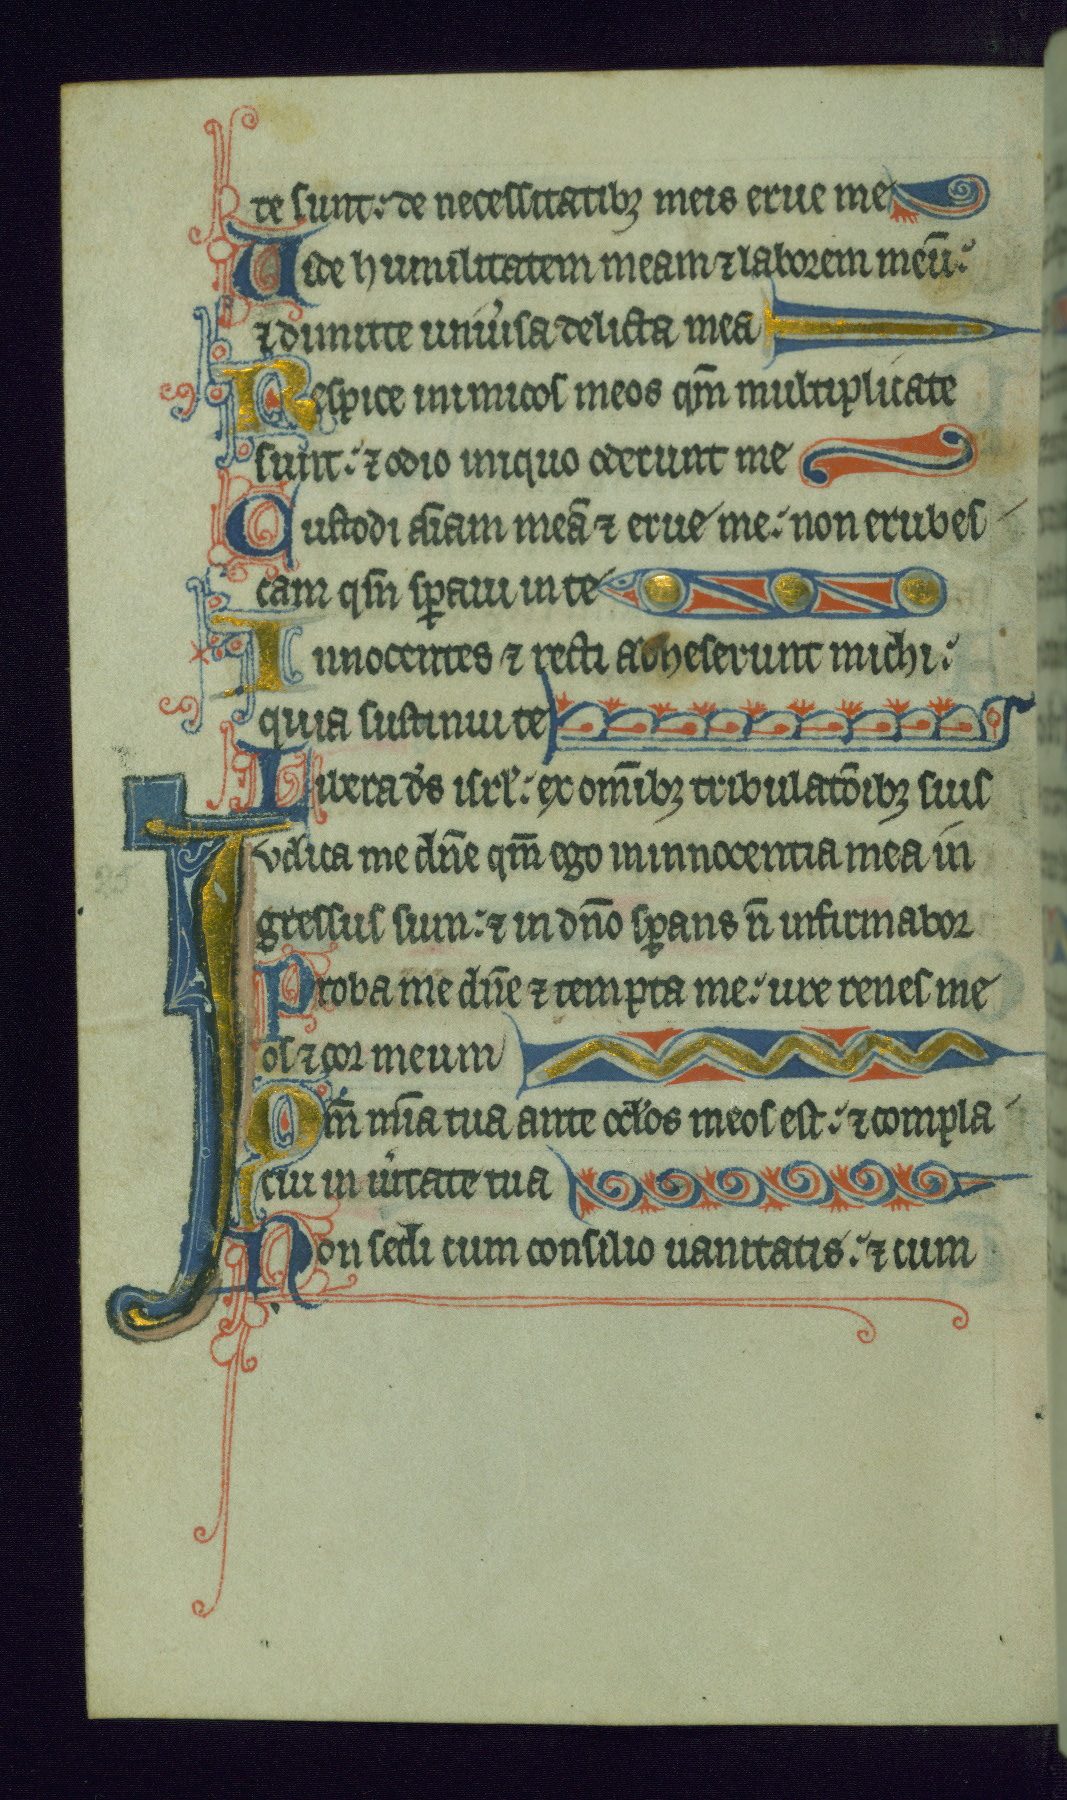 te sunt: de necessitatibꝫ meis erue me
Uide humilitatem meam ⁊ laborem meū:
⁊ dimitte uniu̾sa delicta mea
Respice inimicos meos qm̄ multiplicate
sunt: ⁊ odio iniquo oderunt me
Custodi aīam meā ⁊ erue me: non erubes
cam qm̄ sꝑaui in te
Innocentes ⁊ recti adheserunt michi:
quia sustinui te
Libera ds̄ isrl̄: ex om̄ibꝫ tribulatōibꝫ suis
Iudica me dn̄e qm̄ ego in innocentia mea in
gressus sum: ⁊ in dn̄o sꝑans n̄ infirmabor
Proba me dn̄e ⁊ tempta me: ure renes me
os ⁊ cor meum
Qm̄ mīa tua ante oc̄los meos est: ⁊ compla
cui in u̾itate tua
Non sedi cum consilio uanitatis: ⁊ cum
25